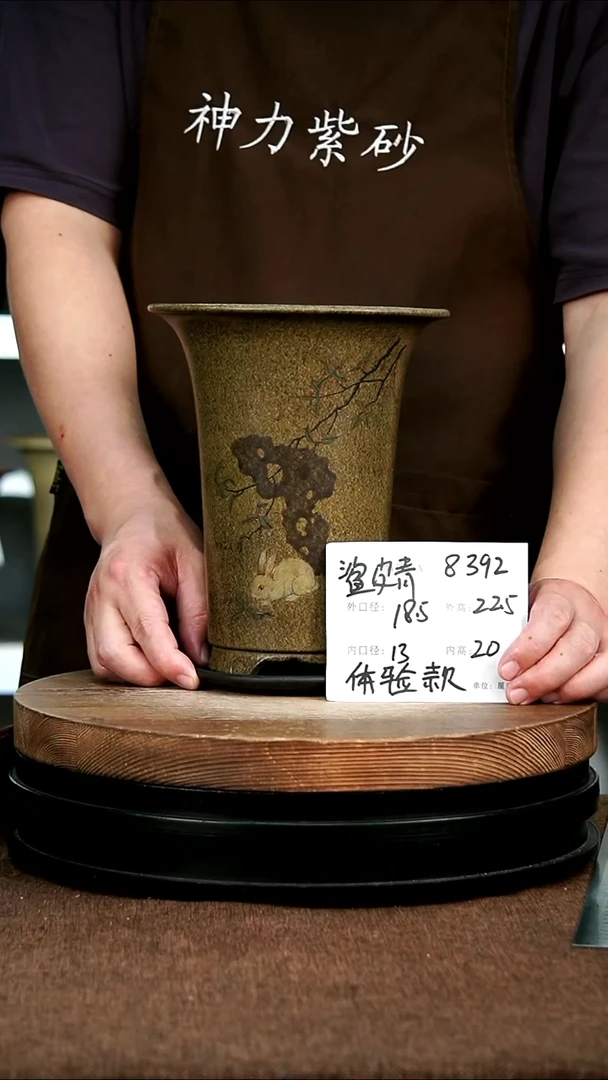 神力紫砂
鲨皮青 8392
外口径: 18.5 外高: 22.5
内口径: 13 内高: 20
体验款 单位: